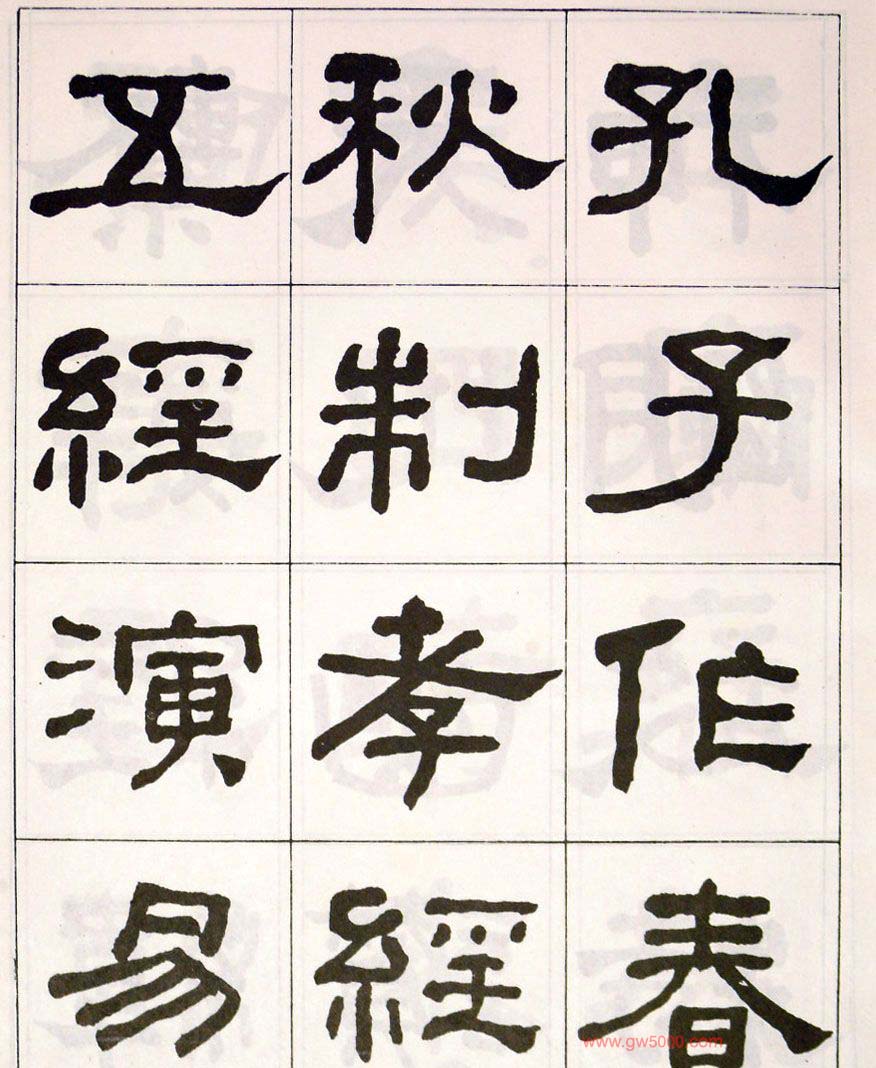 孔子作春
秋制孝經
五經演易
www.gw5000.com